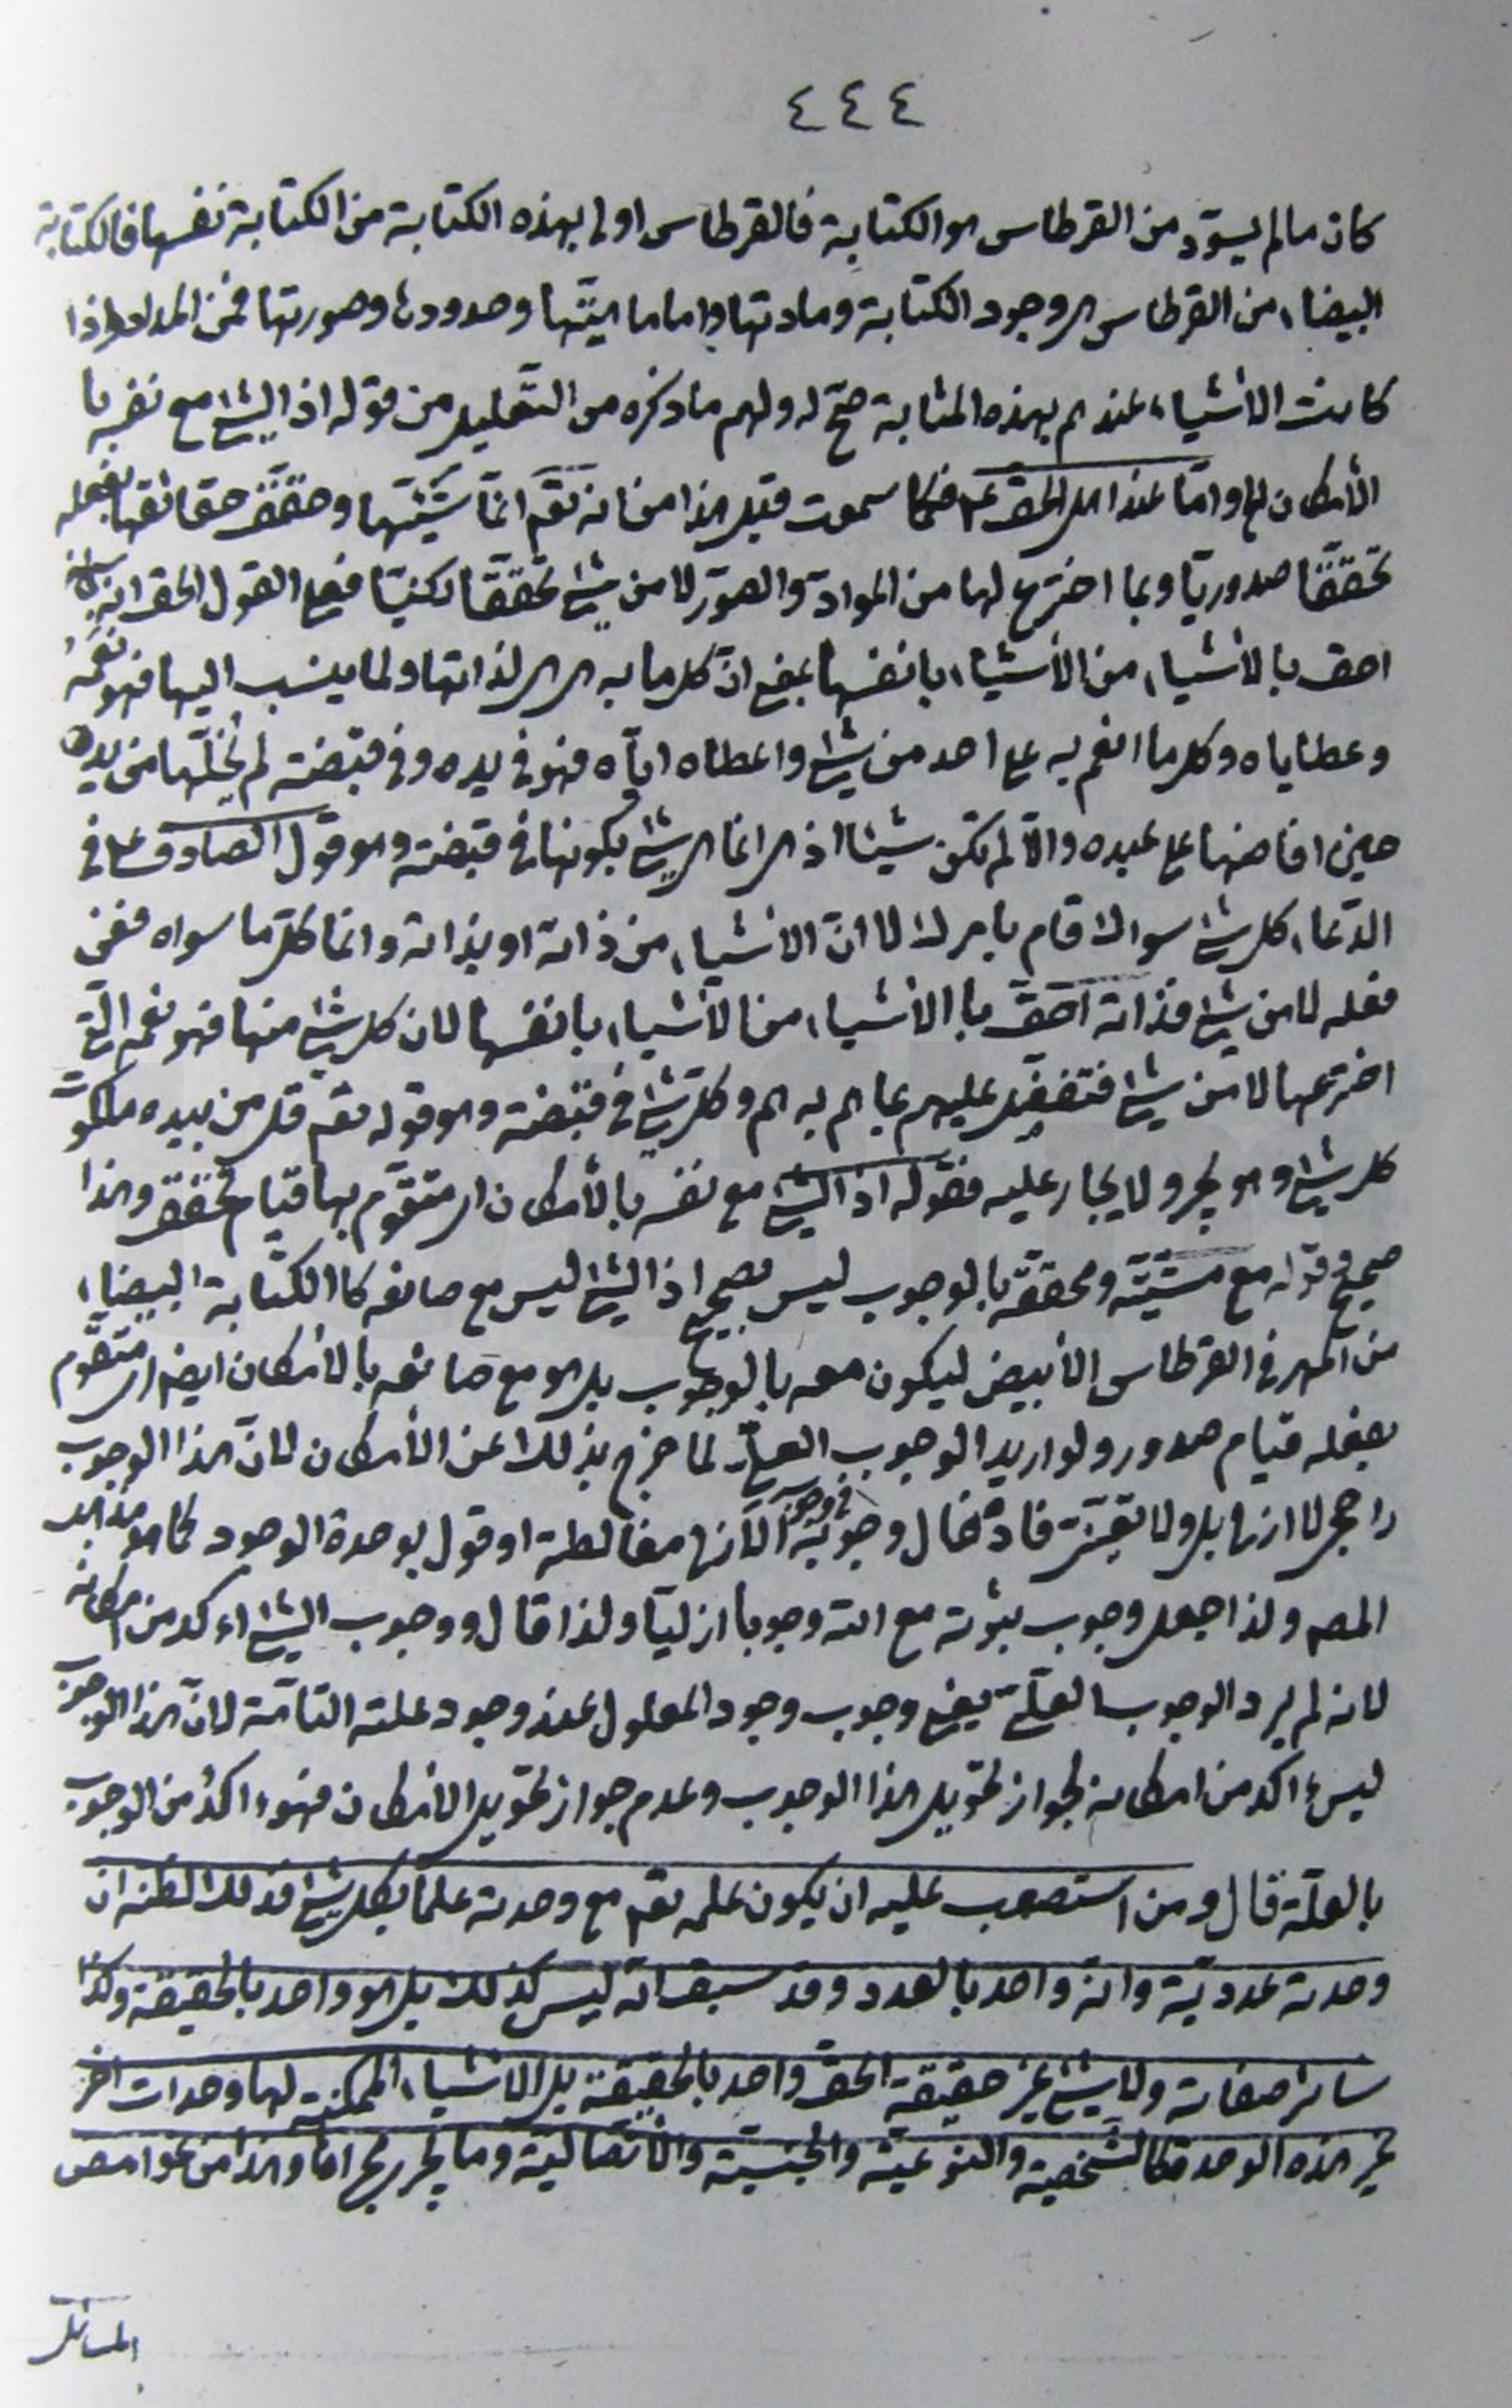 ٤٤٤
كان ما لم يسوّد من القرطاس هو الكتابة فالقرطاس اولى بهذه الكتابة من الكتابة نفسها فالكتابة
البيضاء من القرطاس هى وجود الكتابة ومادتها واما ماهيّتها وحدودها وصورتها فمن المداد واذا
كانت الأشياء عندهم بهذه المثابة صحّ له ولهم ما ذكره من التعليل من قوله اذ الشئ مع نفسه با
لأمكان لها وامّا عند اهل الحق عم فكما سمعت قبل هذا من انه تعم انّما شيّئها وحقّق حقائقها بفعله
تحققّا صدوريّا وبما اخترع لها من الموادّ والصوّر لا من شئ تحققّا ركنيّا فعلى القول الحق انه
احق بالأشياء من الأشياء بانفسها بمعنى انّ كل ما به هى هى لذاتها ولما ينسب اليها فهو نعمه
وعطاياه وكل ما انعم به على احد من شئ واعطاه ايّاه فهو فى يده وفى قبضته لم يُخلّها من يده
حين افاضها على عبده والّا لم تكن شيئا اذ هى انما هى شئ بكونها فى قبضته وهو قول الصادق ع فى
الدّعاء كل شئ سواك قام بامرك لا انّ الاشياء من ذاته او بذاته وانما كلّ ما سواه فمن
فعله لا من شئ فذاته احقّ باالأشياء من الأشياء بانفسها لان كل شئ منها فهو نعمه الّتى
اخترعها لا من شئ فتفضّل عليهم بما هم به هم وكلّ شئ فى قبضته وهو قوله تعم قل من بيده ملكوت
كل شئ وهو يجير ولا يجار عليه فقوله اذ الشئ مع نفسه بالأمكان اى متقوّم بها قيام تحقق وهذا
صحيح وقوله مع مشيّئه ومحققه بالوجوب ليس بصحيح اذ الشئ ليس مع صانعه كاالكتابة البيضاء
من المهر فى القرطاس الأبيض ليكون معه بالوجوب بل هو مع صانعه بالأمكان ايضا اى متقوّم
بفعله قيام صدور ولو اريد الوجوب العلّى لما خرج بذلك عن الأمكان لانّ هذا الوجوب
المص ولذا جعل وجوب ثبوته مع الله وجوبا ازليّا ولذا قال ووجوب الشئ اءكد من امكانه
لانه لم يرد الوجوب العلّى يعنى وجوب وجود المعلول عند وجود علته التامّة لانّ هذا الوجوب
ليس ءاكد من امكانه لجواز تحويل هذا الوجوب وعدم جواز تحويل الأمكان فهو ءاكد من الوجوب
بالعلّة قال ومن استصعب عليه ان يكون علمه تعم مع وحدته علما بكل شئ فذلك لظنه ان
وحدته عدديّة وانه واحد بالعدد وقد سبق انه ليس كذلك بل هو واحد بالحقيقة وكذا
سائر صفاته ولا شئ غير حقيقة الحق واحد بالحقيقة بل الاشياء الممكنة لها وحدات اخر
غير هذه الوحدة كالشخصيّة والنوعيّة والجنسيّة والأتصاليّة وما يجرى مجراها وهذا من غوامض
المسائل